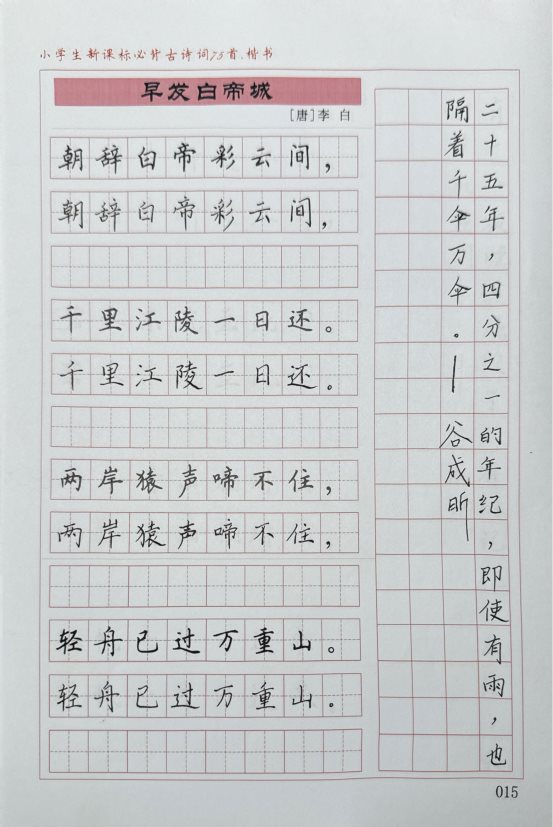 小学生新课标必背古诗词75首.楷书
早发白帝城
[唐]李 白
朝辞白帝彩云间，
朝辞白帝彩云间，
千里江陵一日还。
千里江陵一日还。
两岸猿声啼不住，
两岸猿声啼不住，
轻舟已过万重山。
轻舟已过万重山。
二十五年，四分之一的年纪，即使有雨，也
隔着千伞万伞。—谷成昕
015